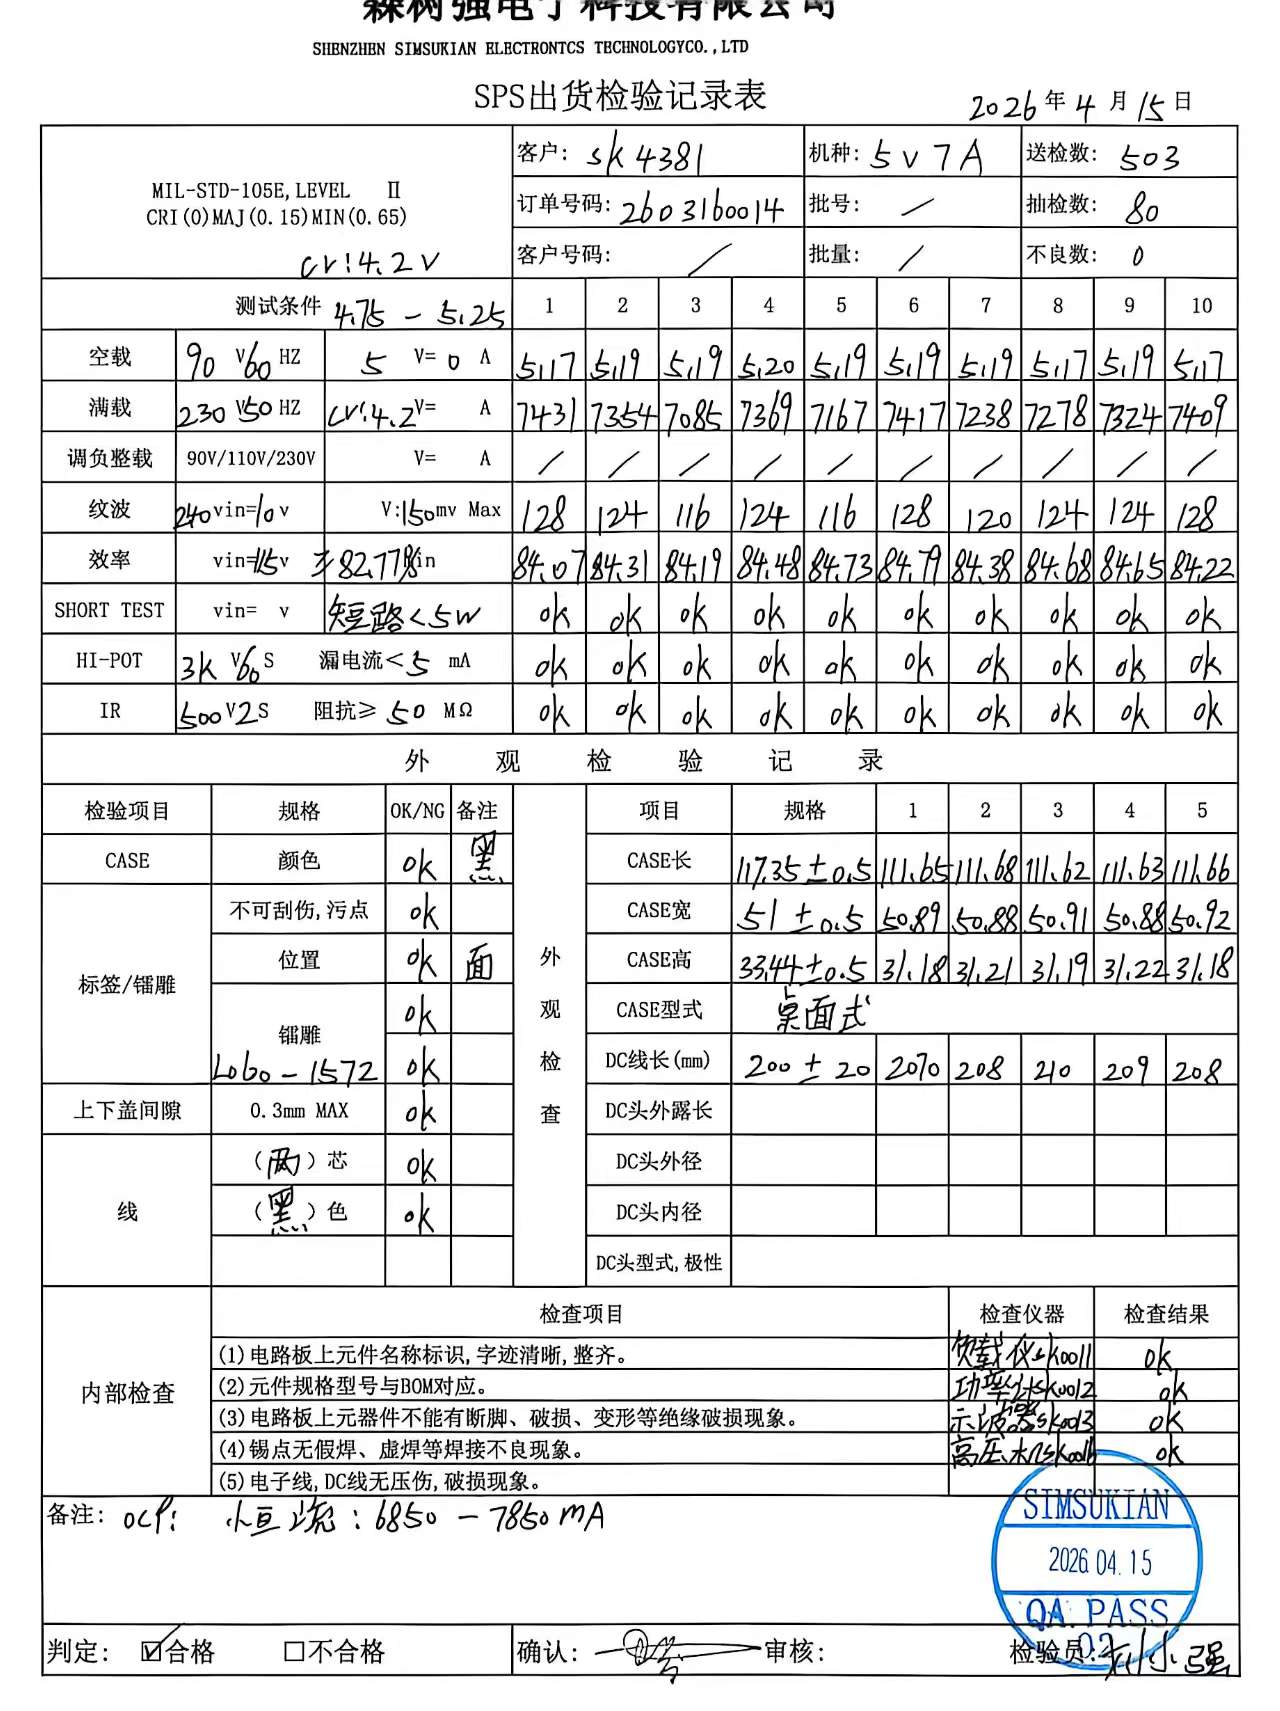 森树强电子科技有限公司
SHENZHEN SIMSUKIAN ELECTRONTCS TECHNOLOGYCO.,LTD
SPS出货检验记录表
2026年4月15日
MIL-STD-105E,LEVEL Ⅱ
CRI(0)MAJ(0.15)MIN(0.65)
CV:4.2V
客户: SK4381 机种: 5V7A 送检数: 503
订单号码: 2603160014 批号: / 抽检数: 80
客户号码: / 批量: / 不良数: 0
测试条件 4.75-5.25 1 2 3 4 5 6 7 8 9 10
空载 90V60HZ 5V=0A 5.17 5.19 5.19 5.20 5.19 5.19 5.19 5.17 5.19 5.17
满载 230V50HZ CV:4.2V= A 7431 7354 7085 7369 7167 7417 7238 7278 7324 7409
调负整载 90V/110V/230V V= A / / / / / / / / / /
纹波 240vin=10v V:150mv Max 128 124 116 124 116 128 120 124 124 128
效率 vin=115v ≥82.77%in 84.07 84.31 84.19 84.48 84.73 84.79 84.38 84.68 84.65 84.22
SHORT TEST vin= v 短路<5W ok ok ok ok ok ok ok ok ok ok
HI-POT 3KV60S 漏电流<5mA ok ok ok ok ok ok ok ok ok ok
IR 500V2S 阻抗≥50MΩ ok ok ok ok ok ok ok ok ok ok
外观检验记录
检验项目 规格 OK/NG 备注 项目 规格 1 2 3 4 5
CASE 颜色 ok 黑 CASE长 117.35±0.5 111.65 111.68 111.62 111.63 111.66
不可刮伤,污点 ok CASE宽 51±0.5 50.89 50.88 50.91 50.88 50.92
标签/镭雕 位置 ok 面 外观检查 CASE高 33.44±0.5 31.18 31.21 31.19 31.22 31.18
ok CASE型式 桌面式
镭雕 L060-1572 ok DC线长(mm) 200±20 2070 208 210 209 208
上下盖间隙 0.3mm MAX ok DC头外露长
线 (两)芯 ok DC头外径
(黑)色 ok DC头内径
DC头型式,极性
内部检查 检查项目 检查仪器 检查结果
(1)电路板上元件名称标识,字迹清晰,整齐。 负载仪sk0011 ok
(2)元件规格型号与BOM对应。 功率计sk0012 ok
(3)电路板上元器件不能有断脚、破损、变形等绝缘破损现象。 示波器sk0013 ok
(4)锡点无假焊、虚焊等焊接不良现象。 高压机sk0016 ok
(5)电子线,DC线无压伤,破损现象。
备注: OCP: 小恒流:6850-7850mA
SIMSUKIAN
2026.04.15
QA PASS
02
判定: ☑合格 □不合格 确认: 审核: 检验员:刘小强